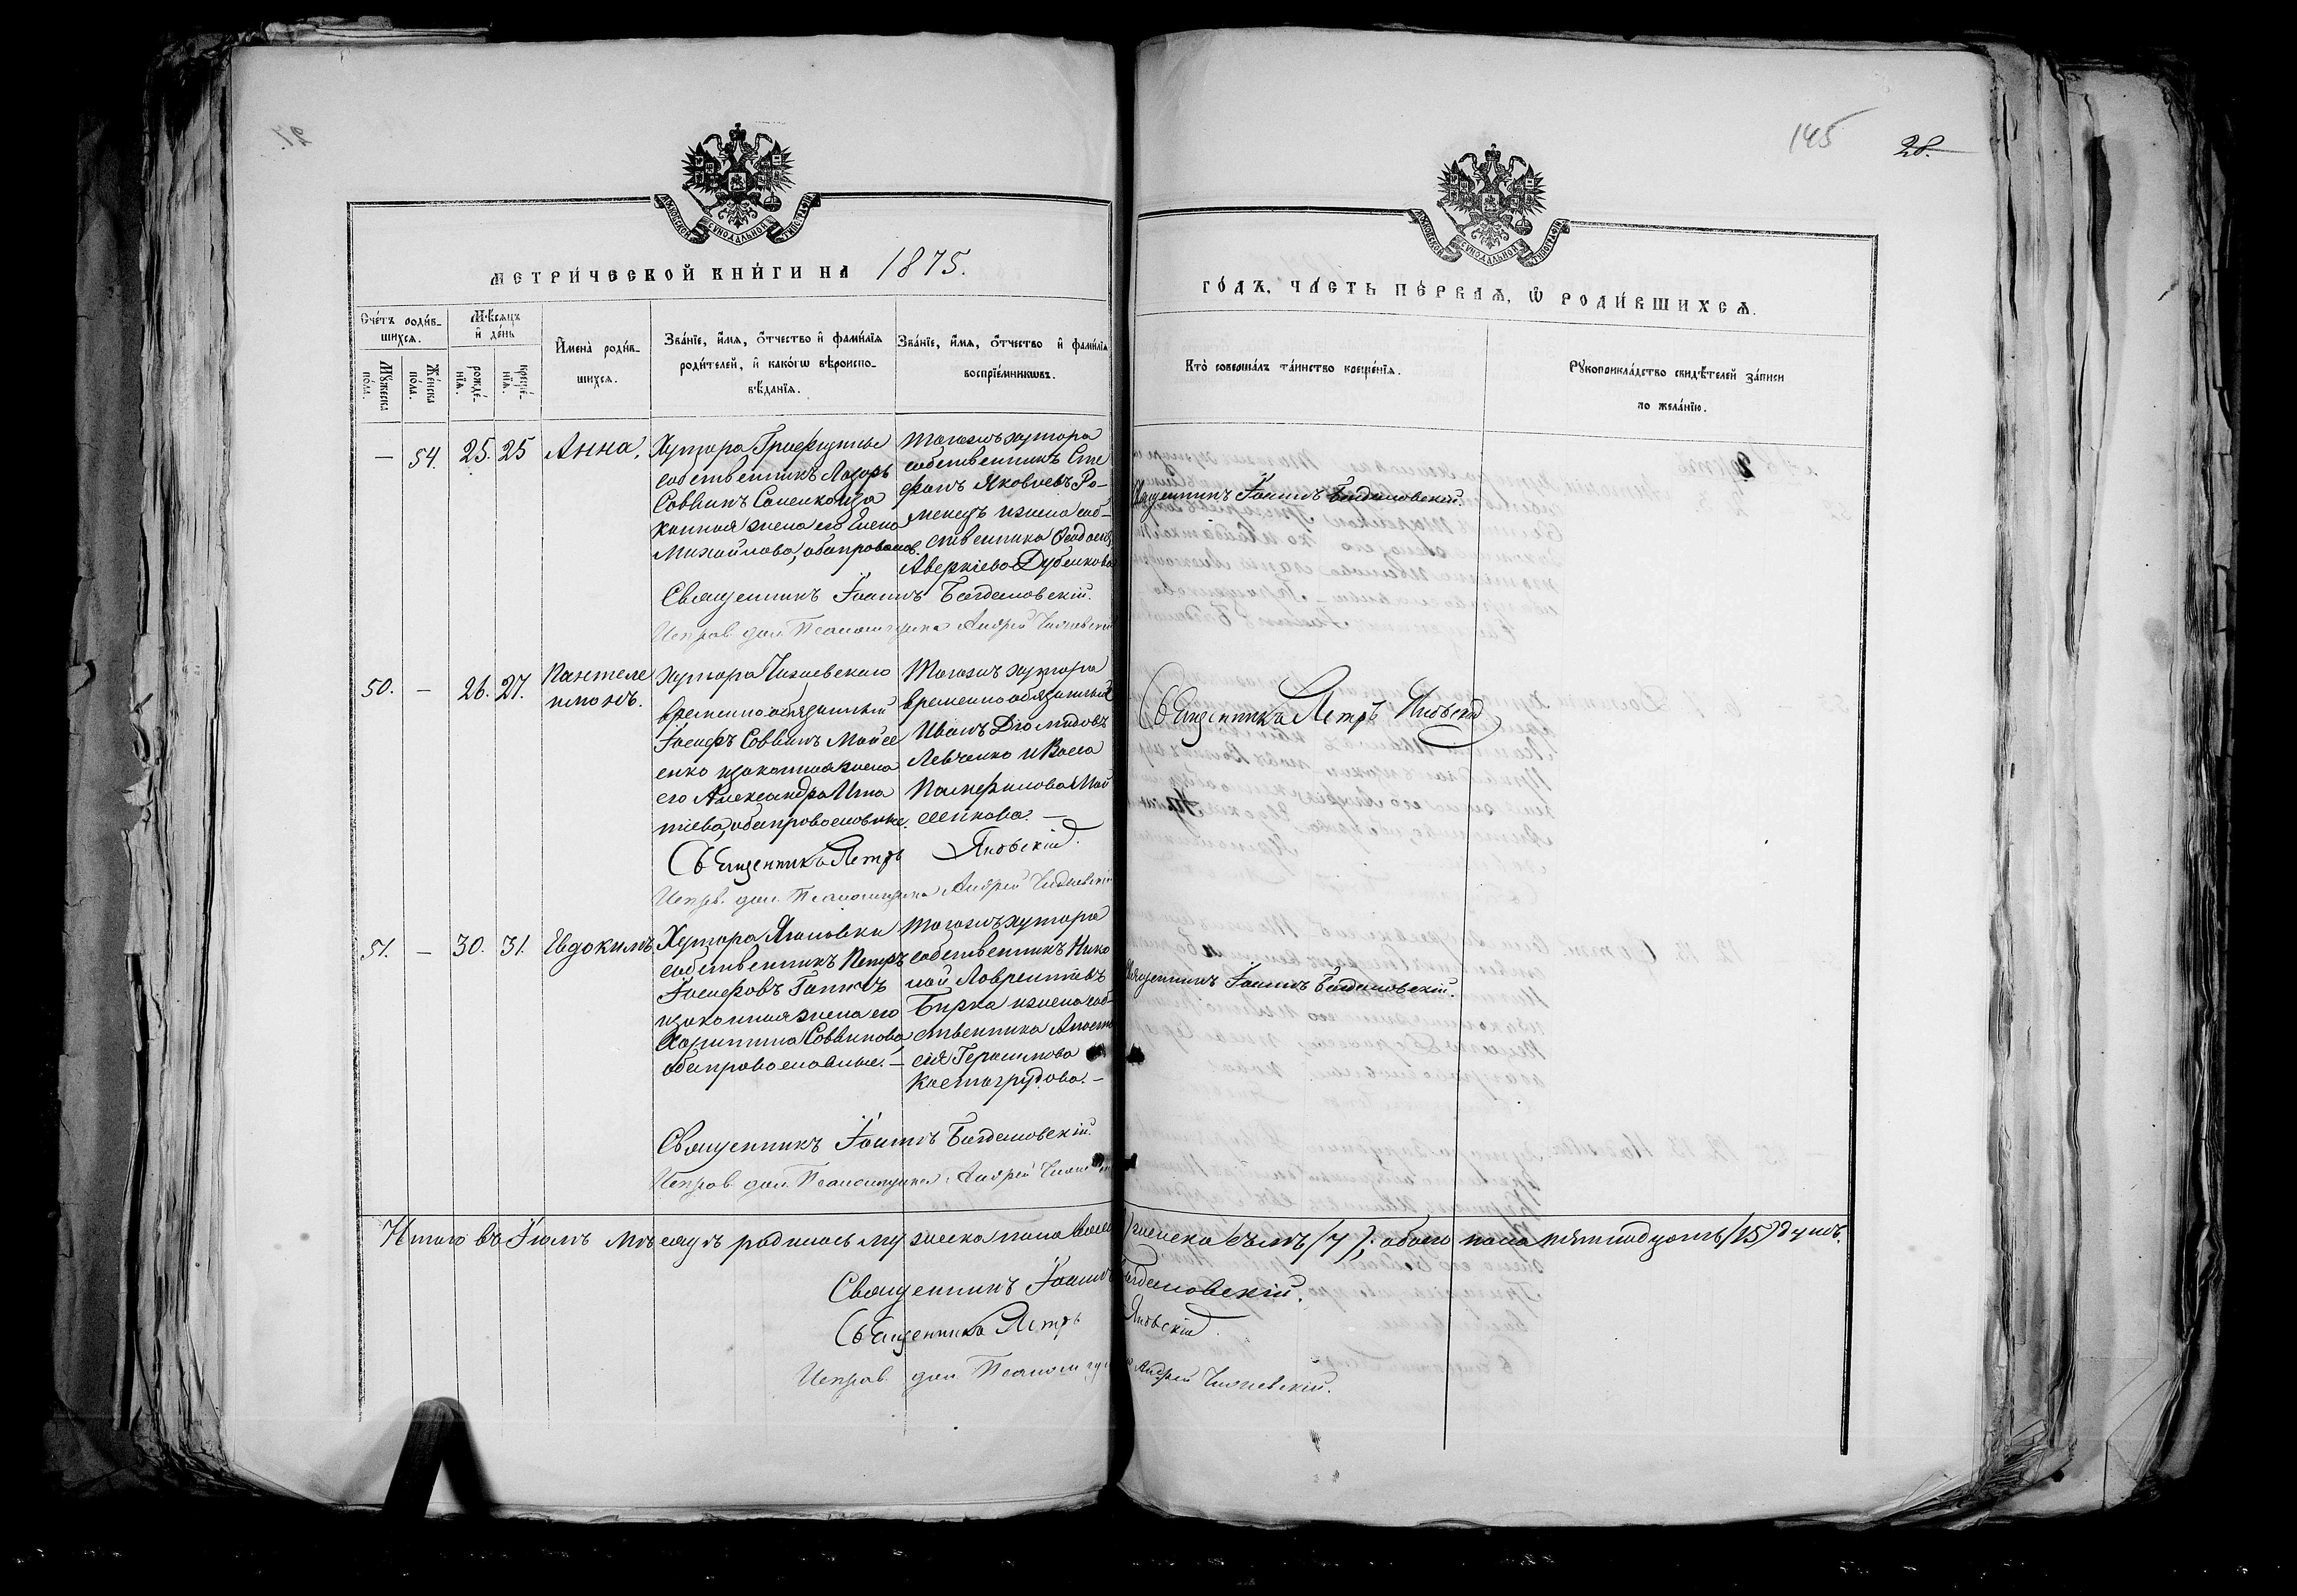 145
28.
МЕТРИ́ЧЕСКОЙ КНИ́ГИ НА 1875.
ГО́ДЪ, ЧА́СТЬ ПЕ́РВАѦ, Ѡ РОДИ́ВШИХСѦ.
Сче́тъ роди́в-
шихсѧ.
Мѣ́сѧцъ
и҆ де́нь
Мꙋ́жеска
по́ла.
Же́нска
по́ла.
рожде́-
нїѧ.
креще́-
нїѧ.
И҆мена̀ роди́в-
шихсѧ.
Зва́нїе, и҆́мѧ, ѻ҆́тчество и҆ фами́лїѧ
роди́телей, и҆ како́гѡ вѣроиспо-
вѣ́данїѧ.
Зва́нїе, и҆́мѧ, ѻ҆́тчество и҆ фами́лїѧ
воспрїе́мникѡвъ.
Кто̀ соверша́лъ та́инство креще́нїѧ.
Рꙋкоприкла́дство свидѣ́телей за́писи
по жела́нїю.
— 54. 25. 25 Анна.
Хутора
собственникъ Лазорь
Саввинъ
законная жена его Елена
Михайлова, оба православ.
Тогожъ хутора
собственникъ Сте
фанъ Яковлевъ Ро-
менецъ и жена соб-
ственника Феодосія
Аверкіева Дубенкова
Священникъ Іоаннъ Богдановскій.
Священникъ Іоаннъ Богдановскій.
Исправ. дол. Псаломщика Андрей
50. — 26. 27. Пантеле
имонъ.
Хутора
временнообязанный
Іосифъ Саввинъ Мойсе
енко и законная жена
его Александра Игна
тіева, оба православные.
Тогожъ хутора
временнообязанный
Иванъ Діомидовъ
Левченко и Васса
Панфилова Мой
сеенкова. —
Священникъ Петръ Яновскій
Священникъ Петръ Яновскій.
Исправ. дол. Псаломщика Андрей
51. — 30. 31. Евдокимъ.
Хутора
собственникъ Петръ
Іосифовъ
и законная жена его
Харитина Саввинова
оба православные. —
Тогожъ хутора
собственникъ Нико
лай Лаврентіевъ
Бирка и жена соб-
ственника Анаста
сія Герасимова
—
Священникъ Іоаннъ Богдановскій.
Священникъ Іоаннъ Богдановскій.
Исправ. дол. Псаломщика Андрей
Итого въ Іюлѣ мѣсяцѣ родилось мужеска пола женска семь (7); обоего пола пятнадцать (15) душъ.
Священникъ Іоаннъ Богдановскій.
Священникъ Петръ Яновскій.
Исправ. дол. Псаломщика Андрей